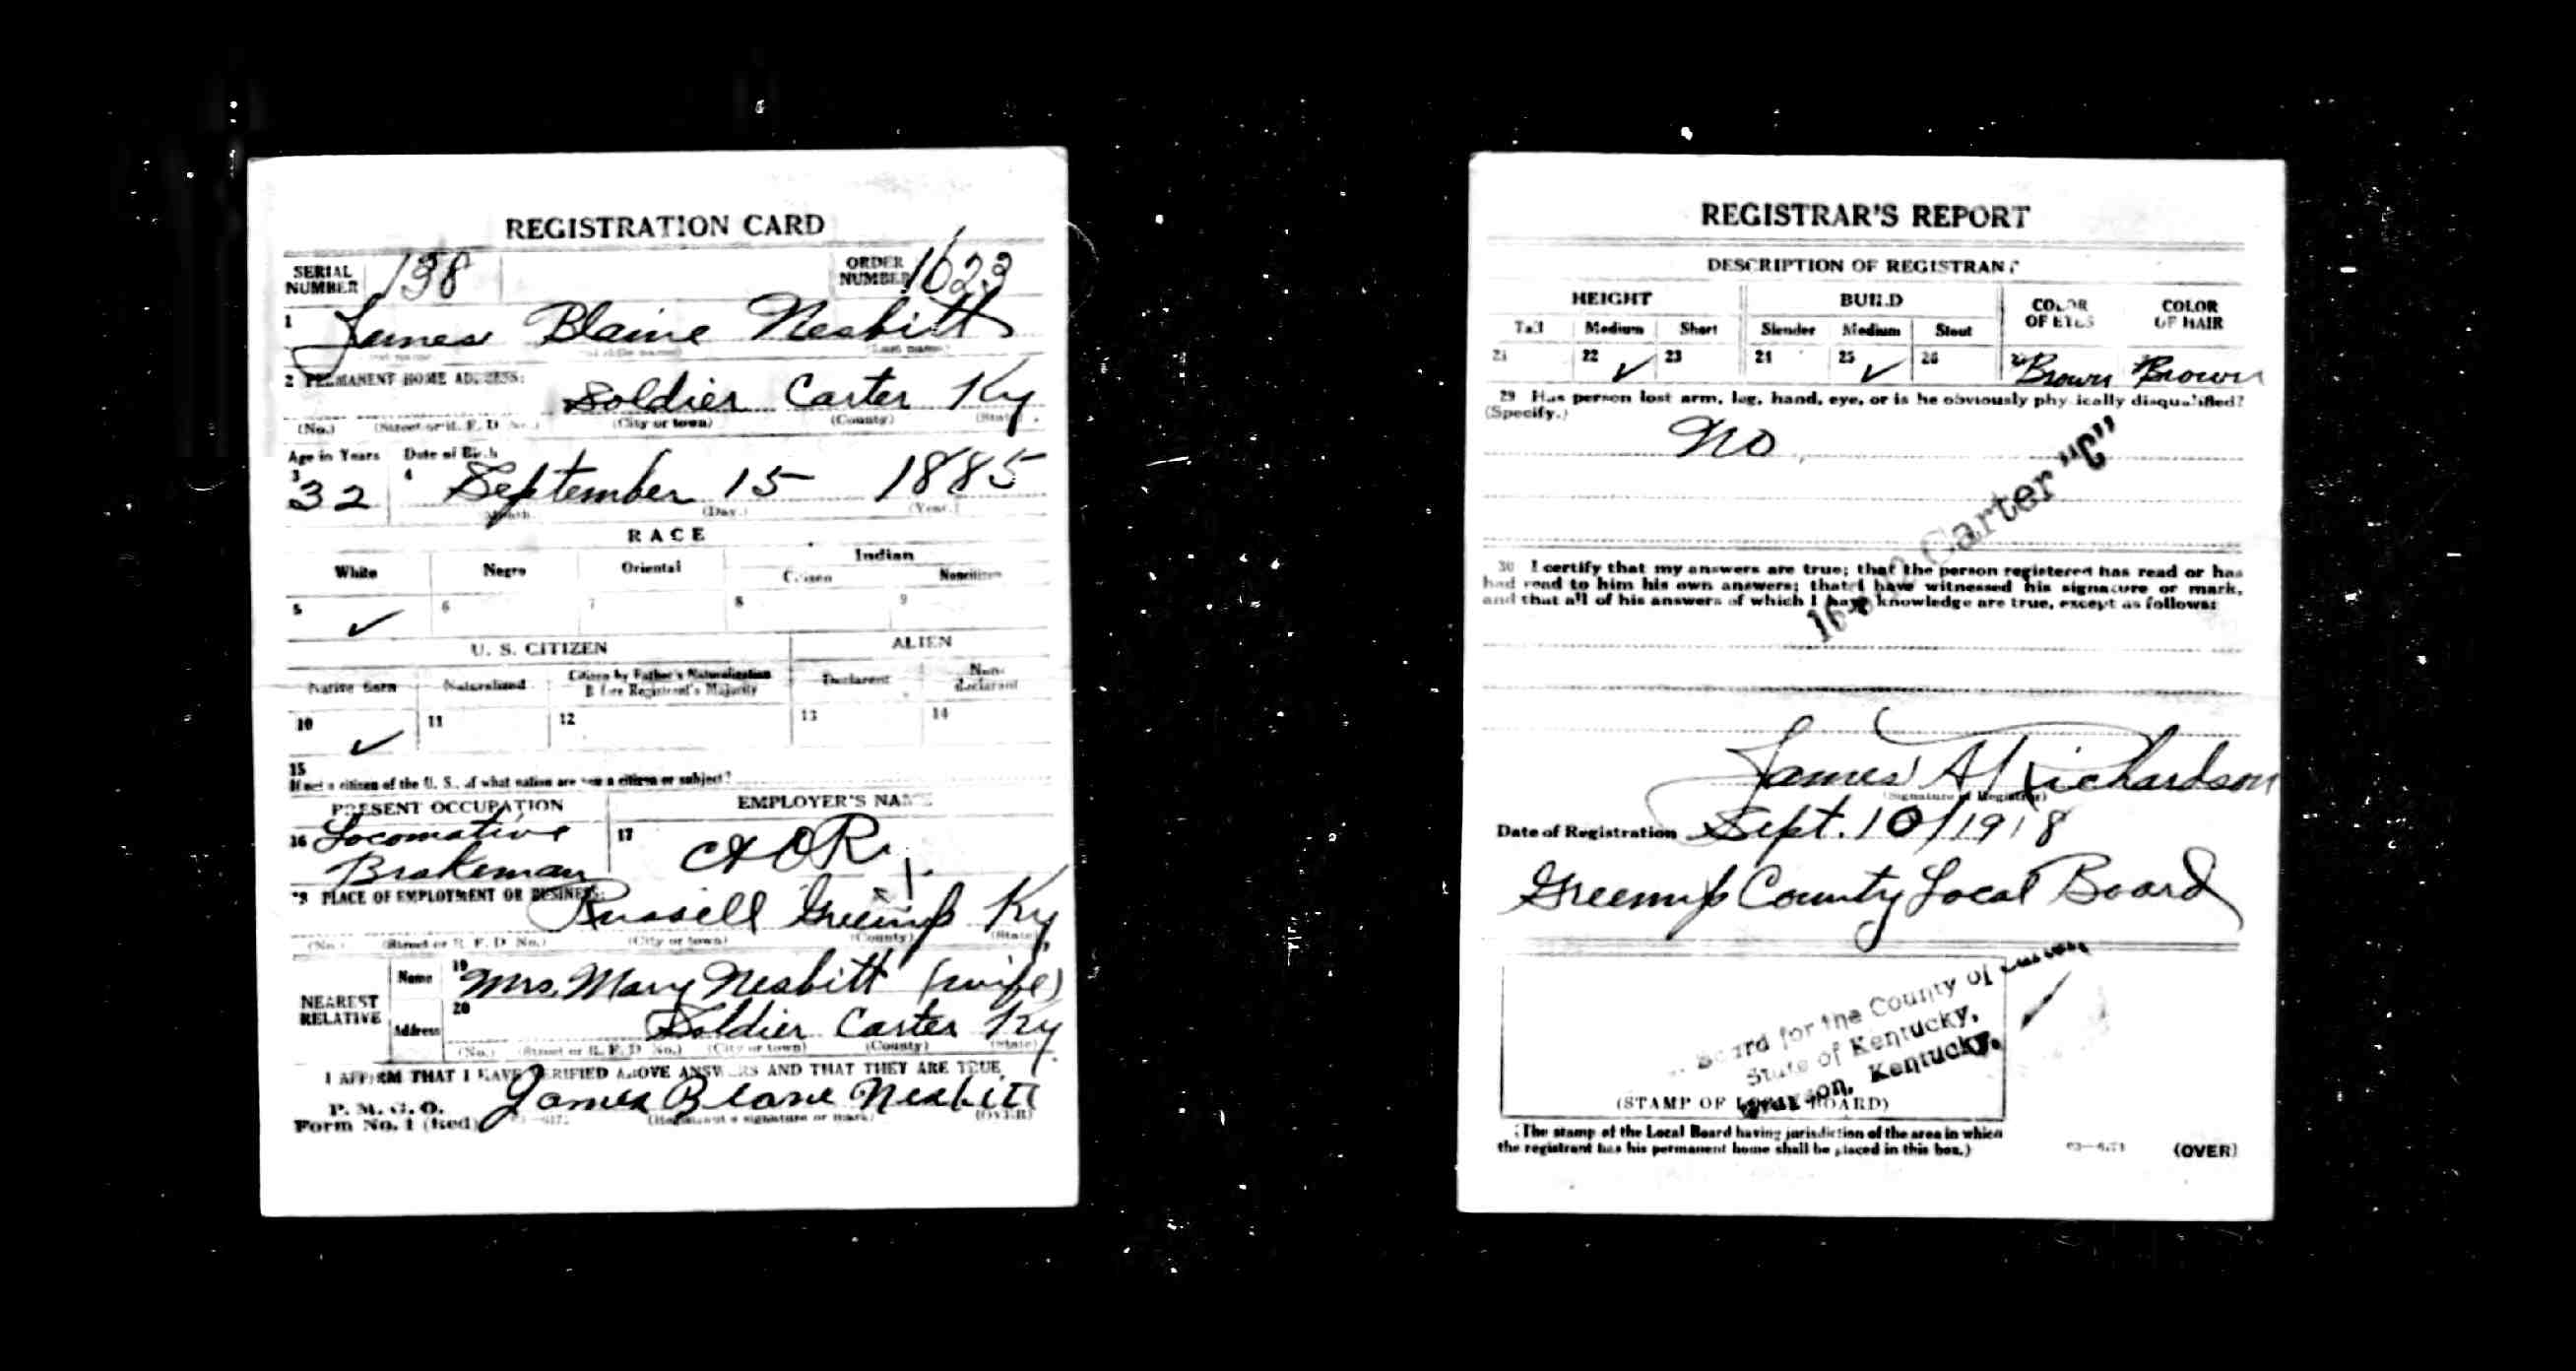 REGISTRATION CARD
SERIAL NUMBER 138
ORDER NUMBER 1623
1 James Blaine Nesbitt
(Last name)
2 PERMANENT HOME ADDRESS:
Soldier Carter Ky
(No.) (Street or R. F. D. No.) (City or town) (County) (State)
Age in Years Date of Birth
3 32 4 September 15 1885
Month (Day.) (Year.)
RACE
White Negro Oriental Indian
Citizen Noncitizen
5 ✓ 6 7 8 9
U. S. CITIZEN ALIEN
Native Born Naturalized Citizen by Father's Naturalization Before Registrant's Majority Declarant Non-declarant
10 ✓ 11 12 13 14
15
If not a citizen of the U. S., of what nation are you a citizen or subject?
PRESENT OCCUPATION EMPLOYER'S NAME
16 Locomotive Brakeman 17 C&OR.
PLACE OF EMPLOYMENT OR BUSINESS:
Russell Greenup Ky
(No.) (Street or R. F. D. No.) (City or town) (County) (State)
NEAREST RELATIVE
Name 19 Mrs. Mary Nesbitt (wife)
Address 20 Soldier Carter Ky
(No.) (Street or R. F. D. No.) (City or town) (County) (State)
I AFFIRM THAT I HAVE VERIFIED ABOVE ANSWERS AND THAT THEY ARE TRUE
P. M. G. O.
Form No. 1 (Red) James Blane Nesbitt
(Registrant's signature or mark) (OVER)
REGISTRAR'S REPORT
DESCRIPTION OF REGISTRANT
HEIGHT BUILD COLOR OF EYES COLOR OF HAIR
Tall Medium Short Slender Medium Stout
21 22 ✓ 23 24 25 ✓ 26 Brown Brown
29 Has person lost arm, leg, hand, eye, or is he obviously physically disqualified?
(Specify.)
No
Carter "C"
30 I certify that my answers are true; that the person registered has read or has
had read to him his own answers; that I have witnessed his signature or mark,
and that all of his answers of which I have knowledge are true, except as follows:
James A Richardson
(Signature of Registrar)
Date of Registration Sept. 10/1918
Greenup County Local Board
Board for the County of
State of Kentucky,
Kentucky.
(STAMP OF LOCAL BOARD)
(The stamp of the Local Board having jurisdiction of the area in which
the registrant has his permanent home shall be placed in this box.)
(OVER)